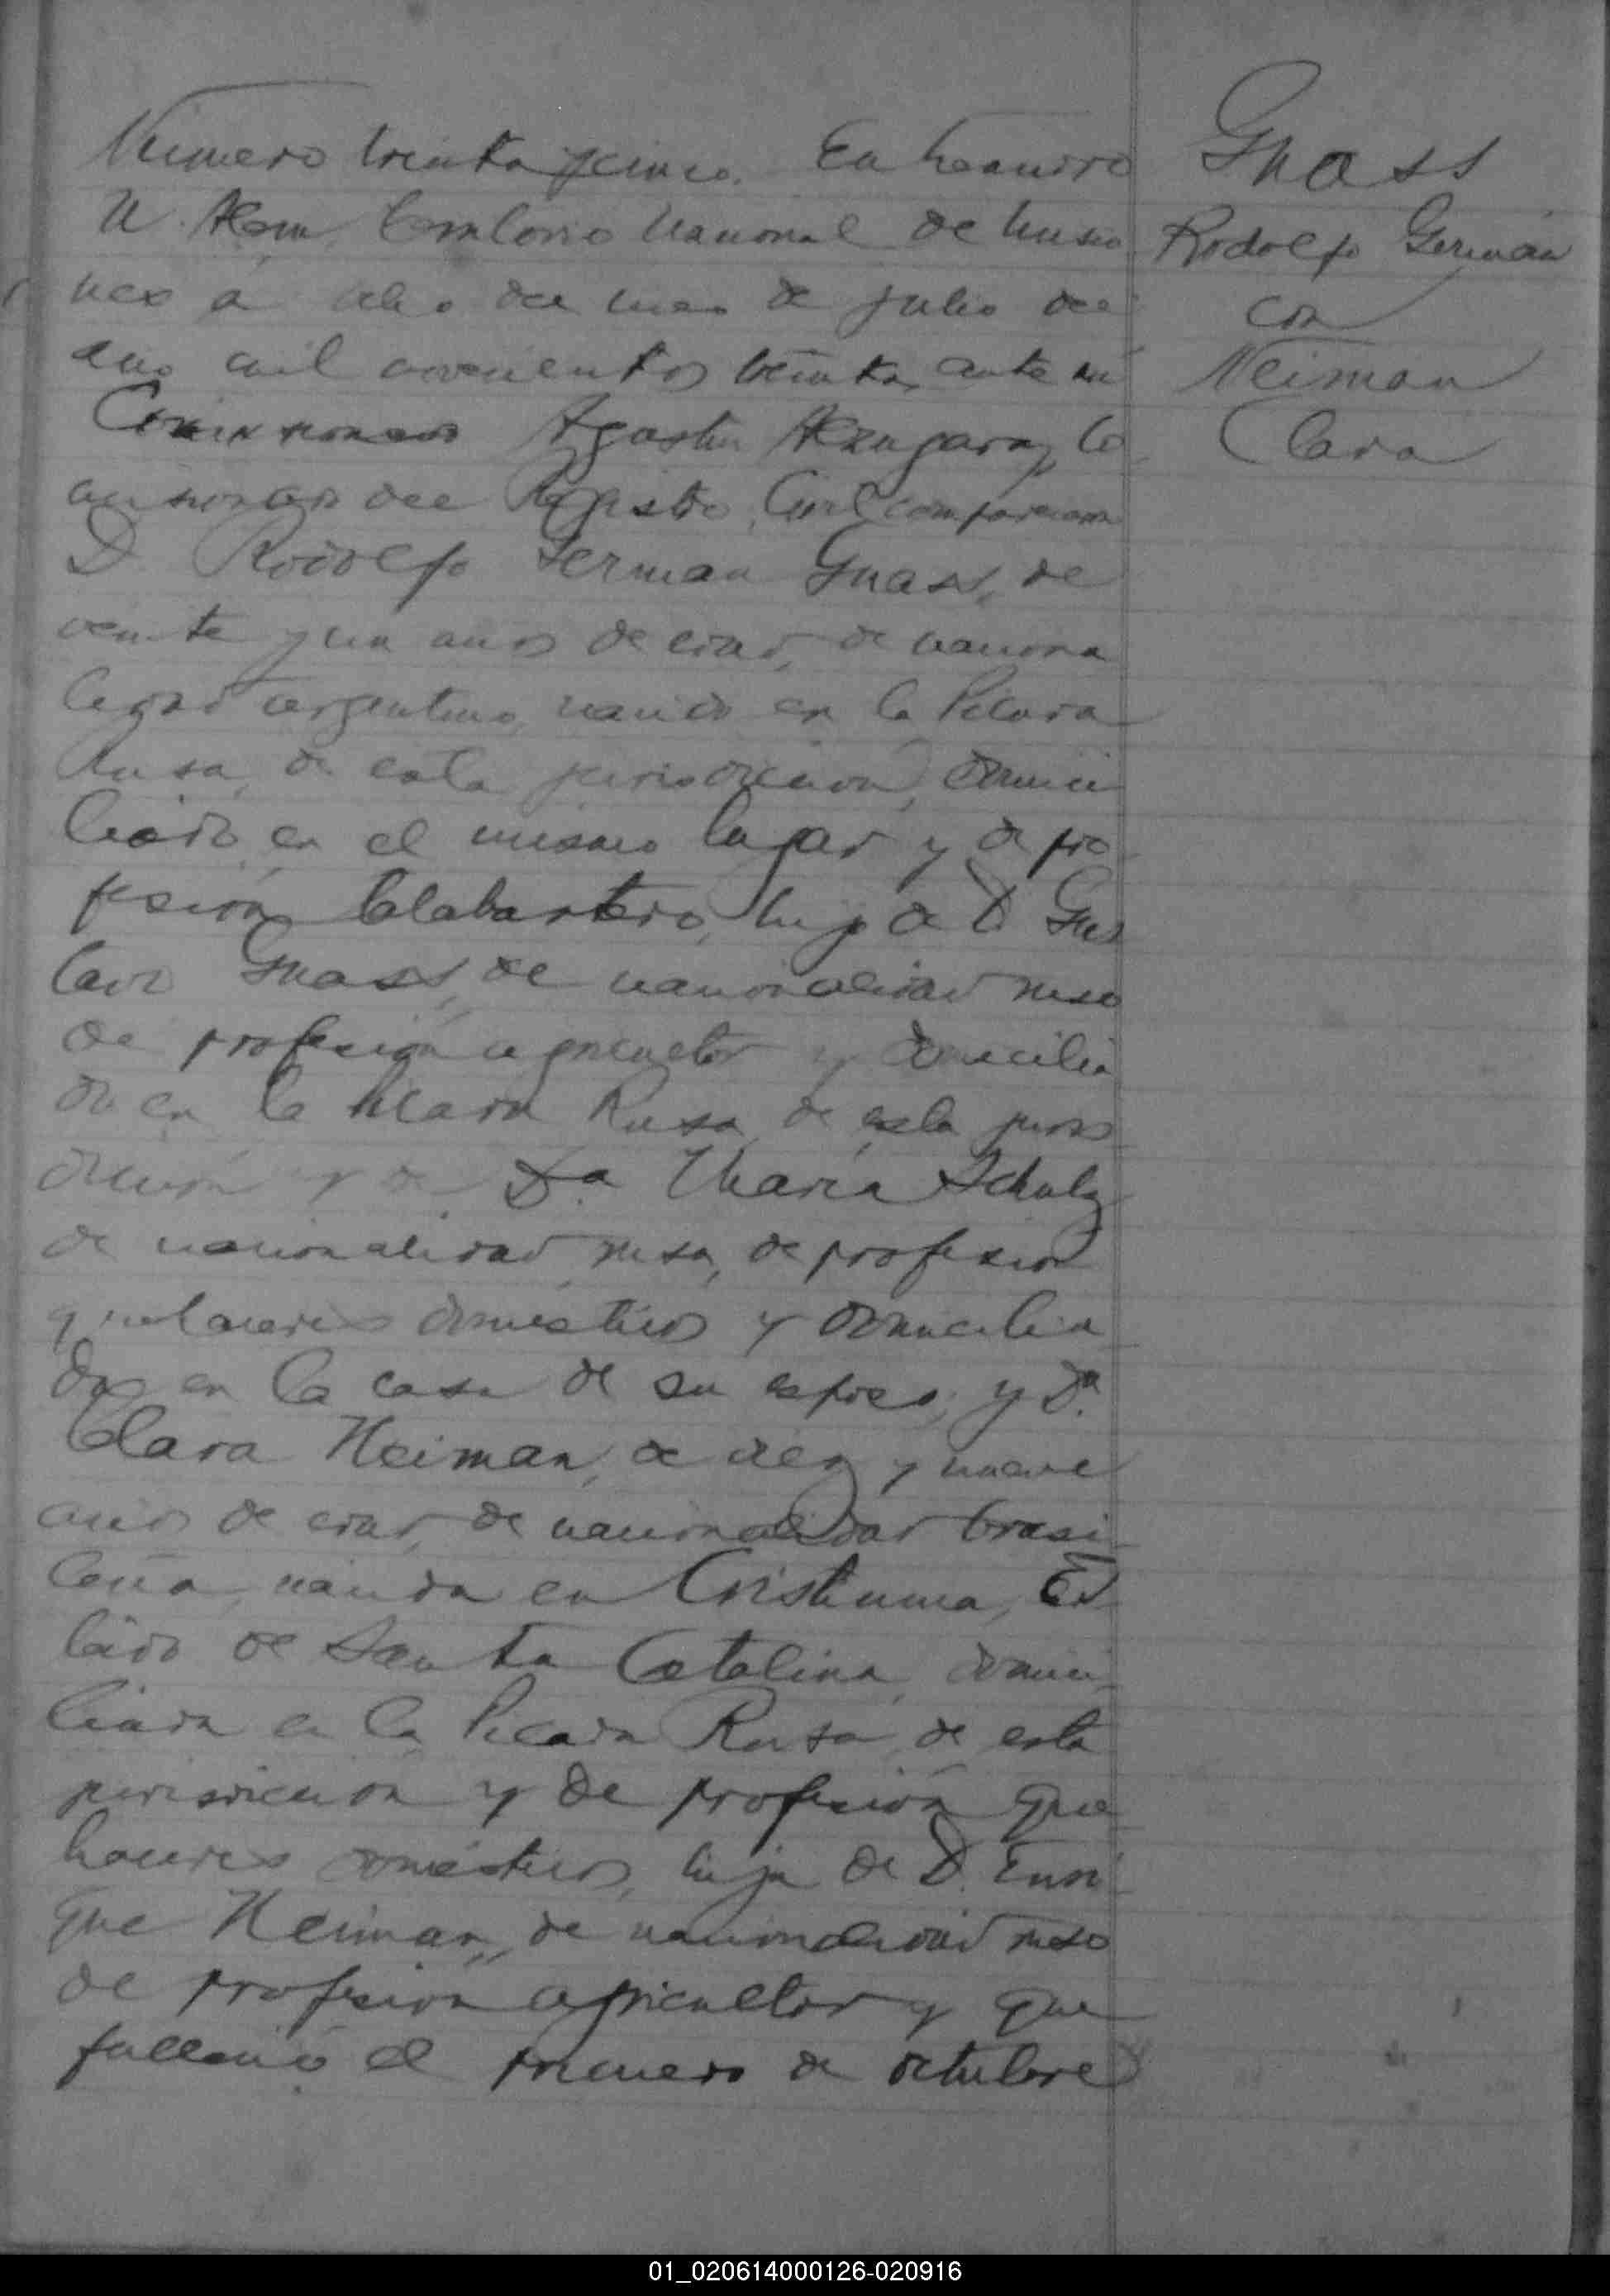 Número treinta y cinco. En Leandro
N. Alem, Territorio Nacional de Misio
nes á ocho del mes de julio del
año mil novecientos treinta, ante mí
Agustín Co
misario del Registro Civil, comparecen
D. Rodolfo German Gnass, de
veinte y un años de edad, de naciona
lidad argentino, nacido en la Picada
Rusa, de esta jurisdicción, domici
liado en el mismo lugar y de pro
fesión talabartero, hijo de D. Gus
tavo Gnass, de nacionalidad ruso
de profesión agricultor y domicilia
do en la Picada Rusa, de esta juris
dicción y de Da. María Schulz
de nacionalidad rusa, de profesión
quehaceres domésticos y domicilia
da en la casa de su esposo; y Da.
Clara Neiman, de diez y nueve
años de edad, de nacionalidad brasi
leña, nacida en Cristiuma, Es
tado de Santa Catalina, domici
liada en la Picada Rusa, de esta
jurisdicción y de profesión que
haceres domésticos, hija de D. Enri
que Neiman, de nacionalidad ruso
de profesión agricultor y que
falleció el primero de octubre
Gnass
Rodolfo Germán
con
Neiman
Clara
01_020614000126-020916